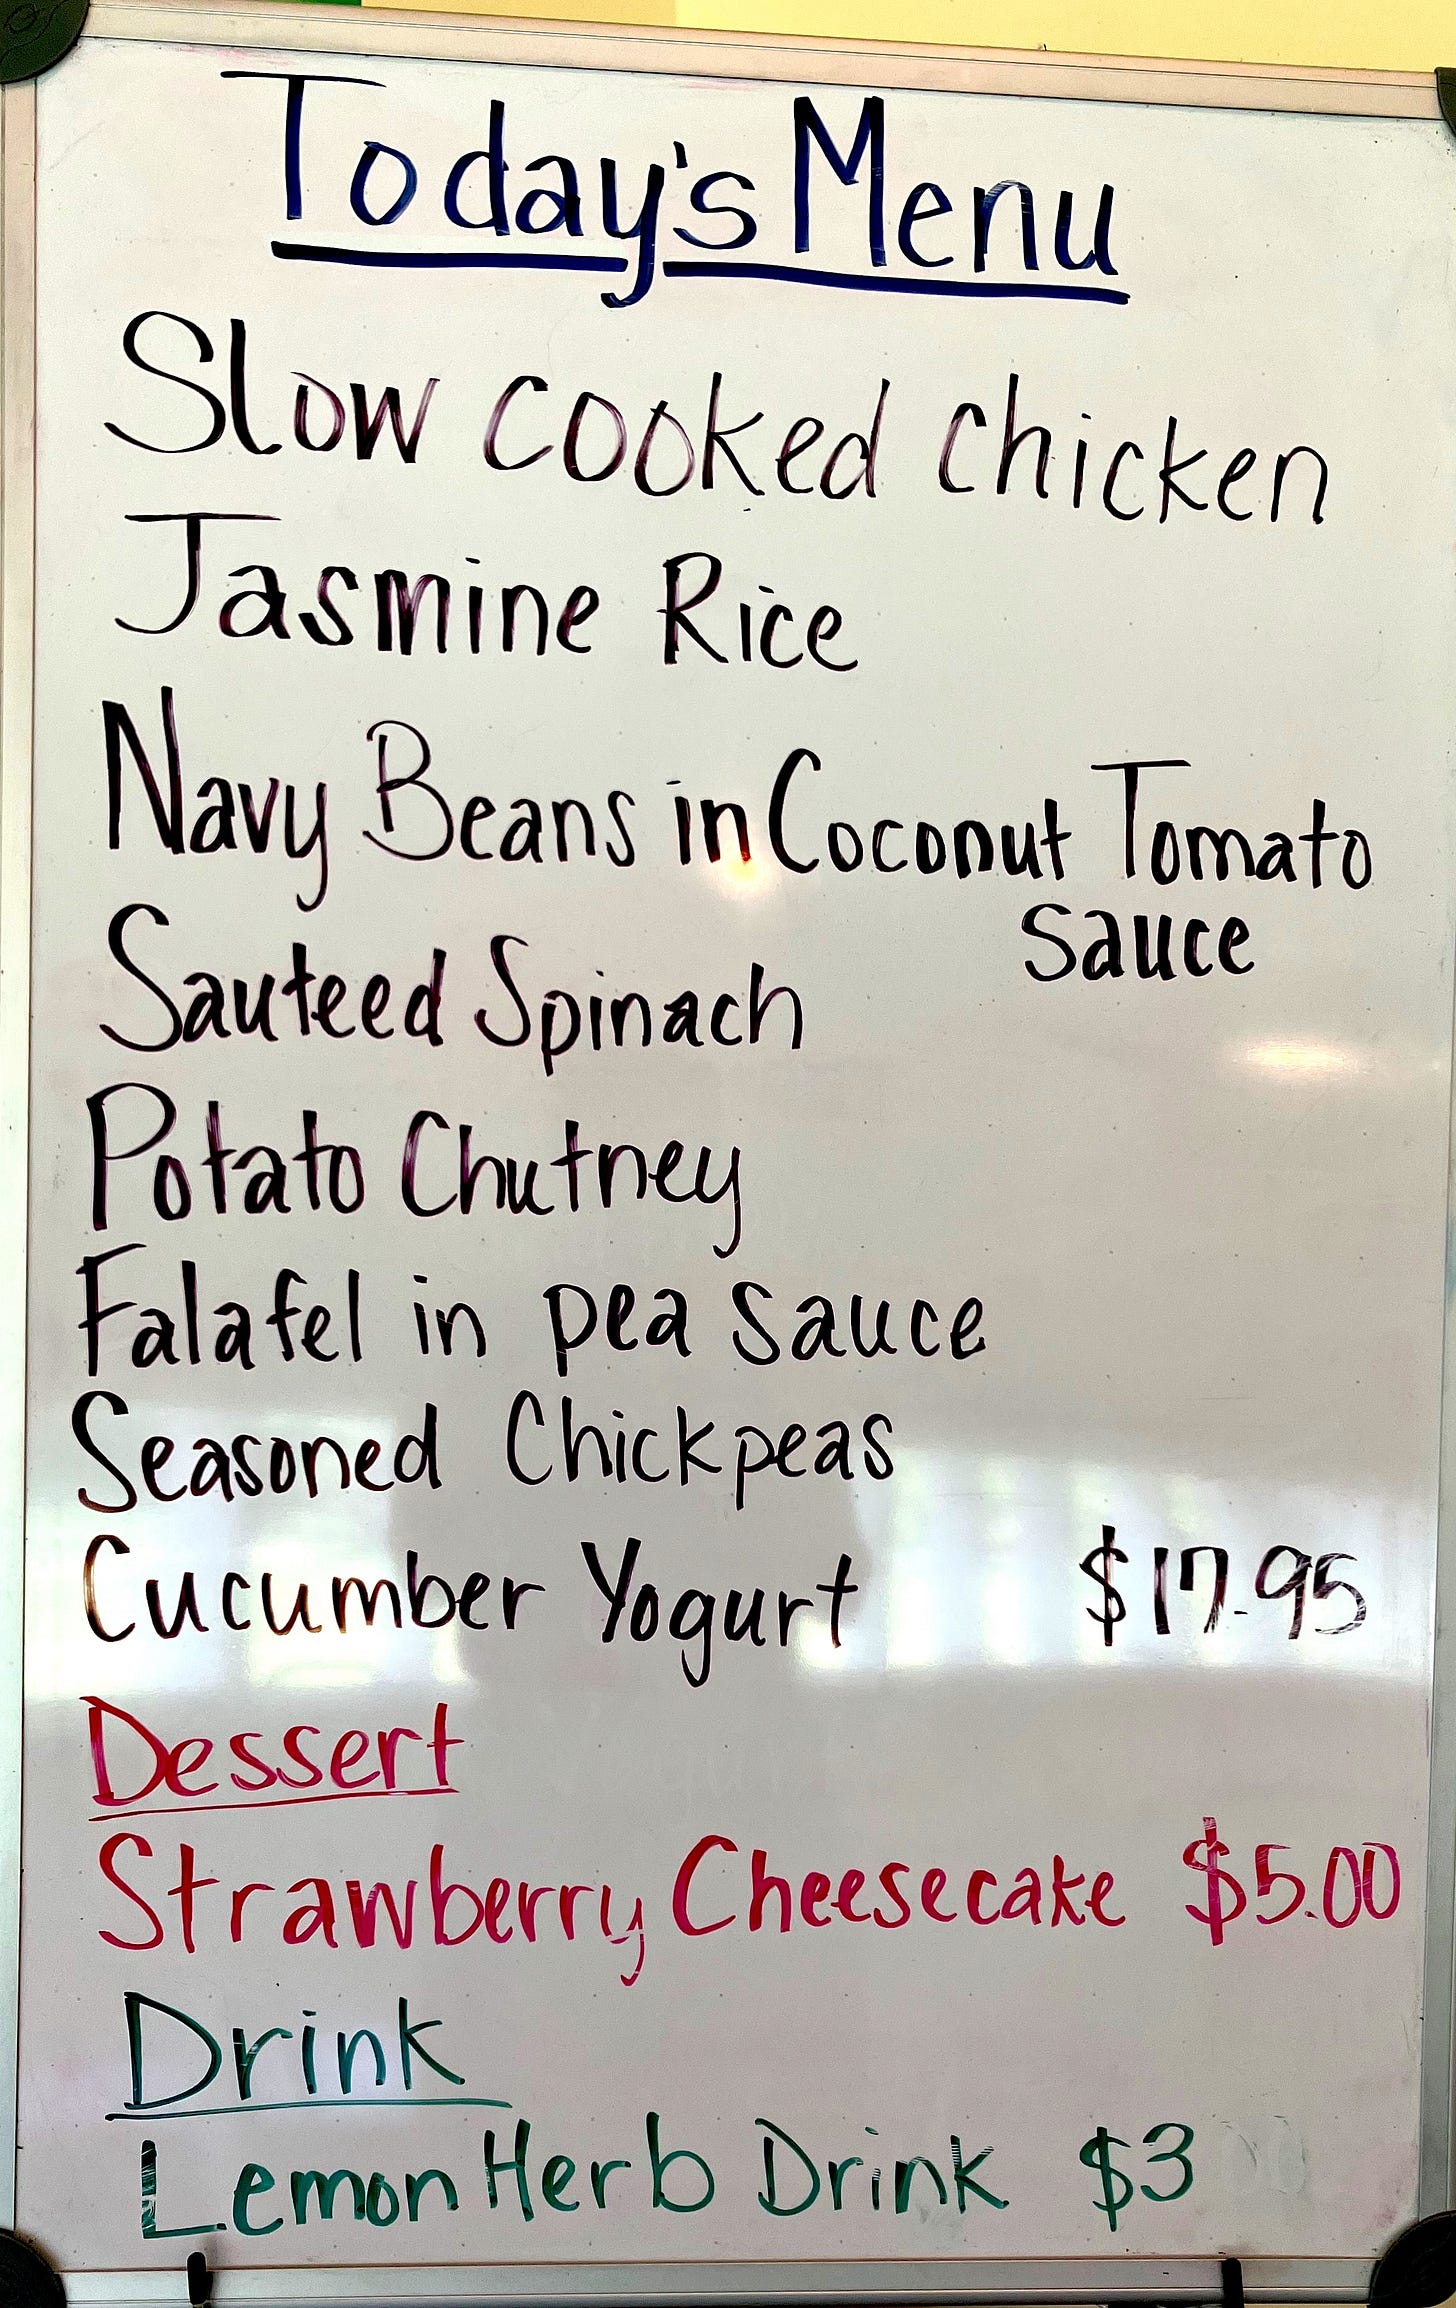 Today's Menu
Slow cooked chicken
Jasmine Rice
Navy Beans in Coconut Tomato
sauce
Sauteed Spinach
Potato Chutney
Falafel in pea sauce
Seasoned Chickpeas
Cucumber Yogurt $17.95
Dessert
Strawberry Cheesecake $5.00
Drink
Lemon Herb Drink $3